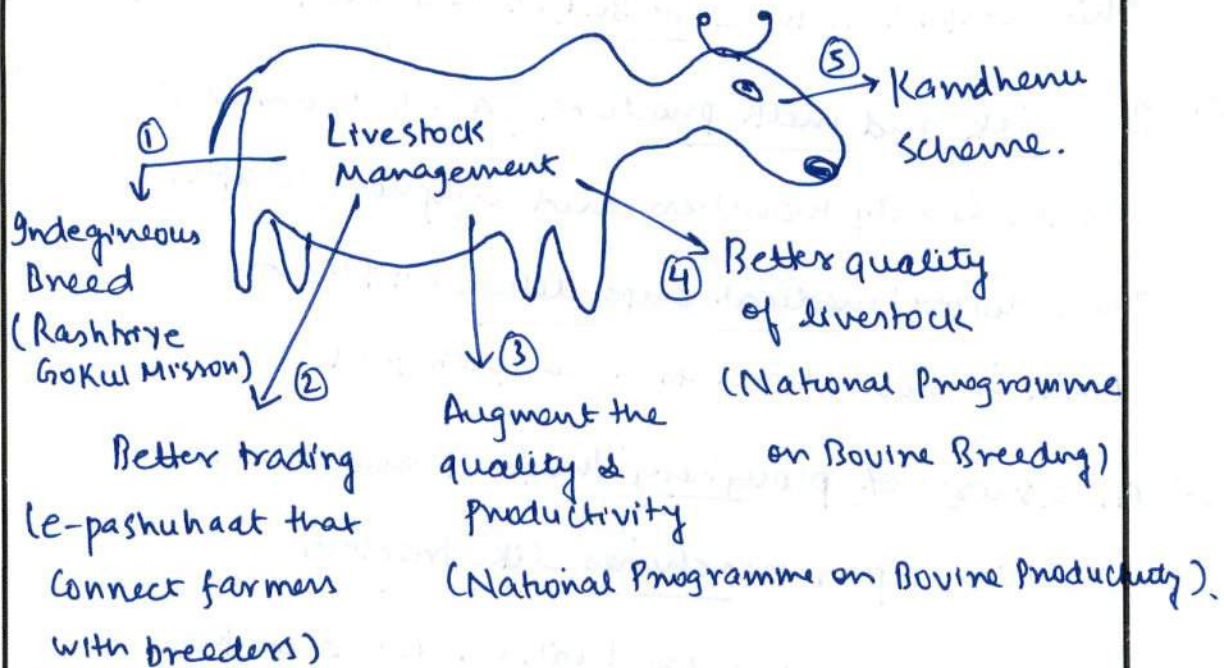 Livestock
Management
①
Indegineous
Breed
(Rashtriye
Gokul Misson)
②
Better trading
(e-pashuhaat that
connect farmers
with breeders)
③
Augment the
quality &
Productivity
(National Programme on Bovine Productivity).
④ Better quality
of livestock
(National Programme
on Bovine Breeding)
⑤ Kamdhenu
scheme.